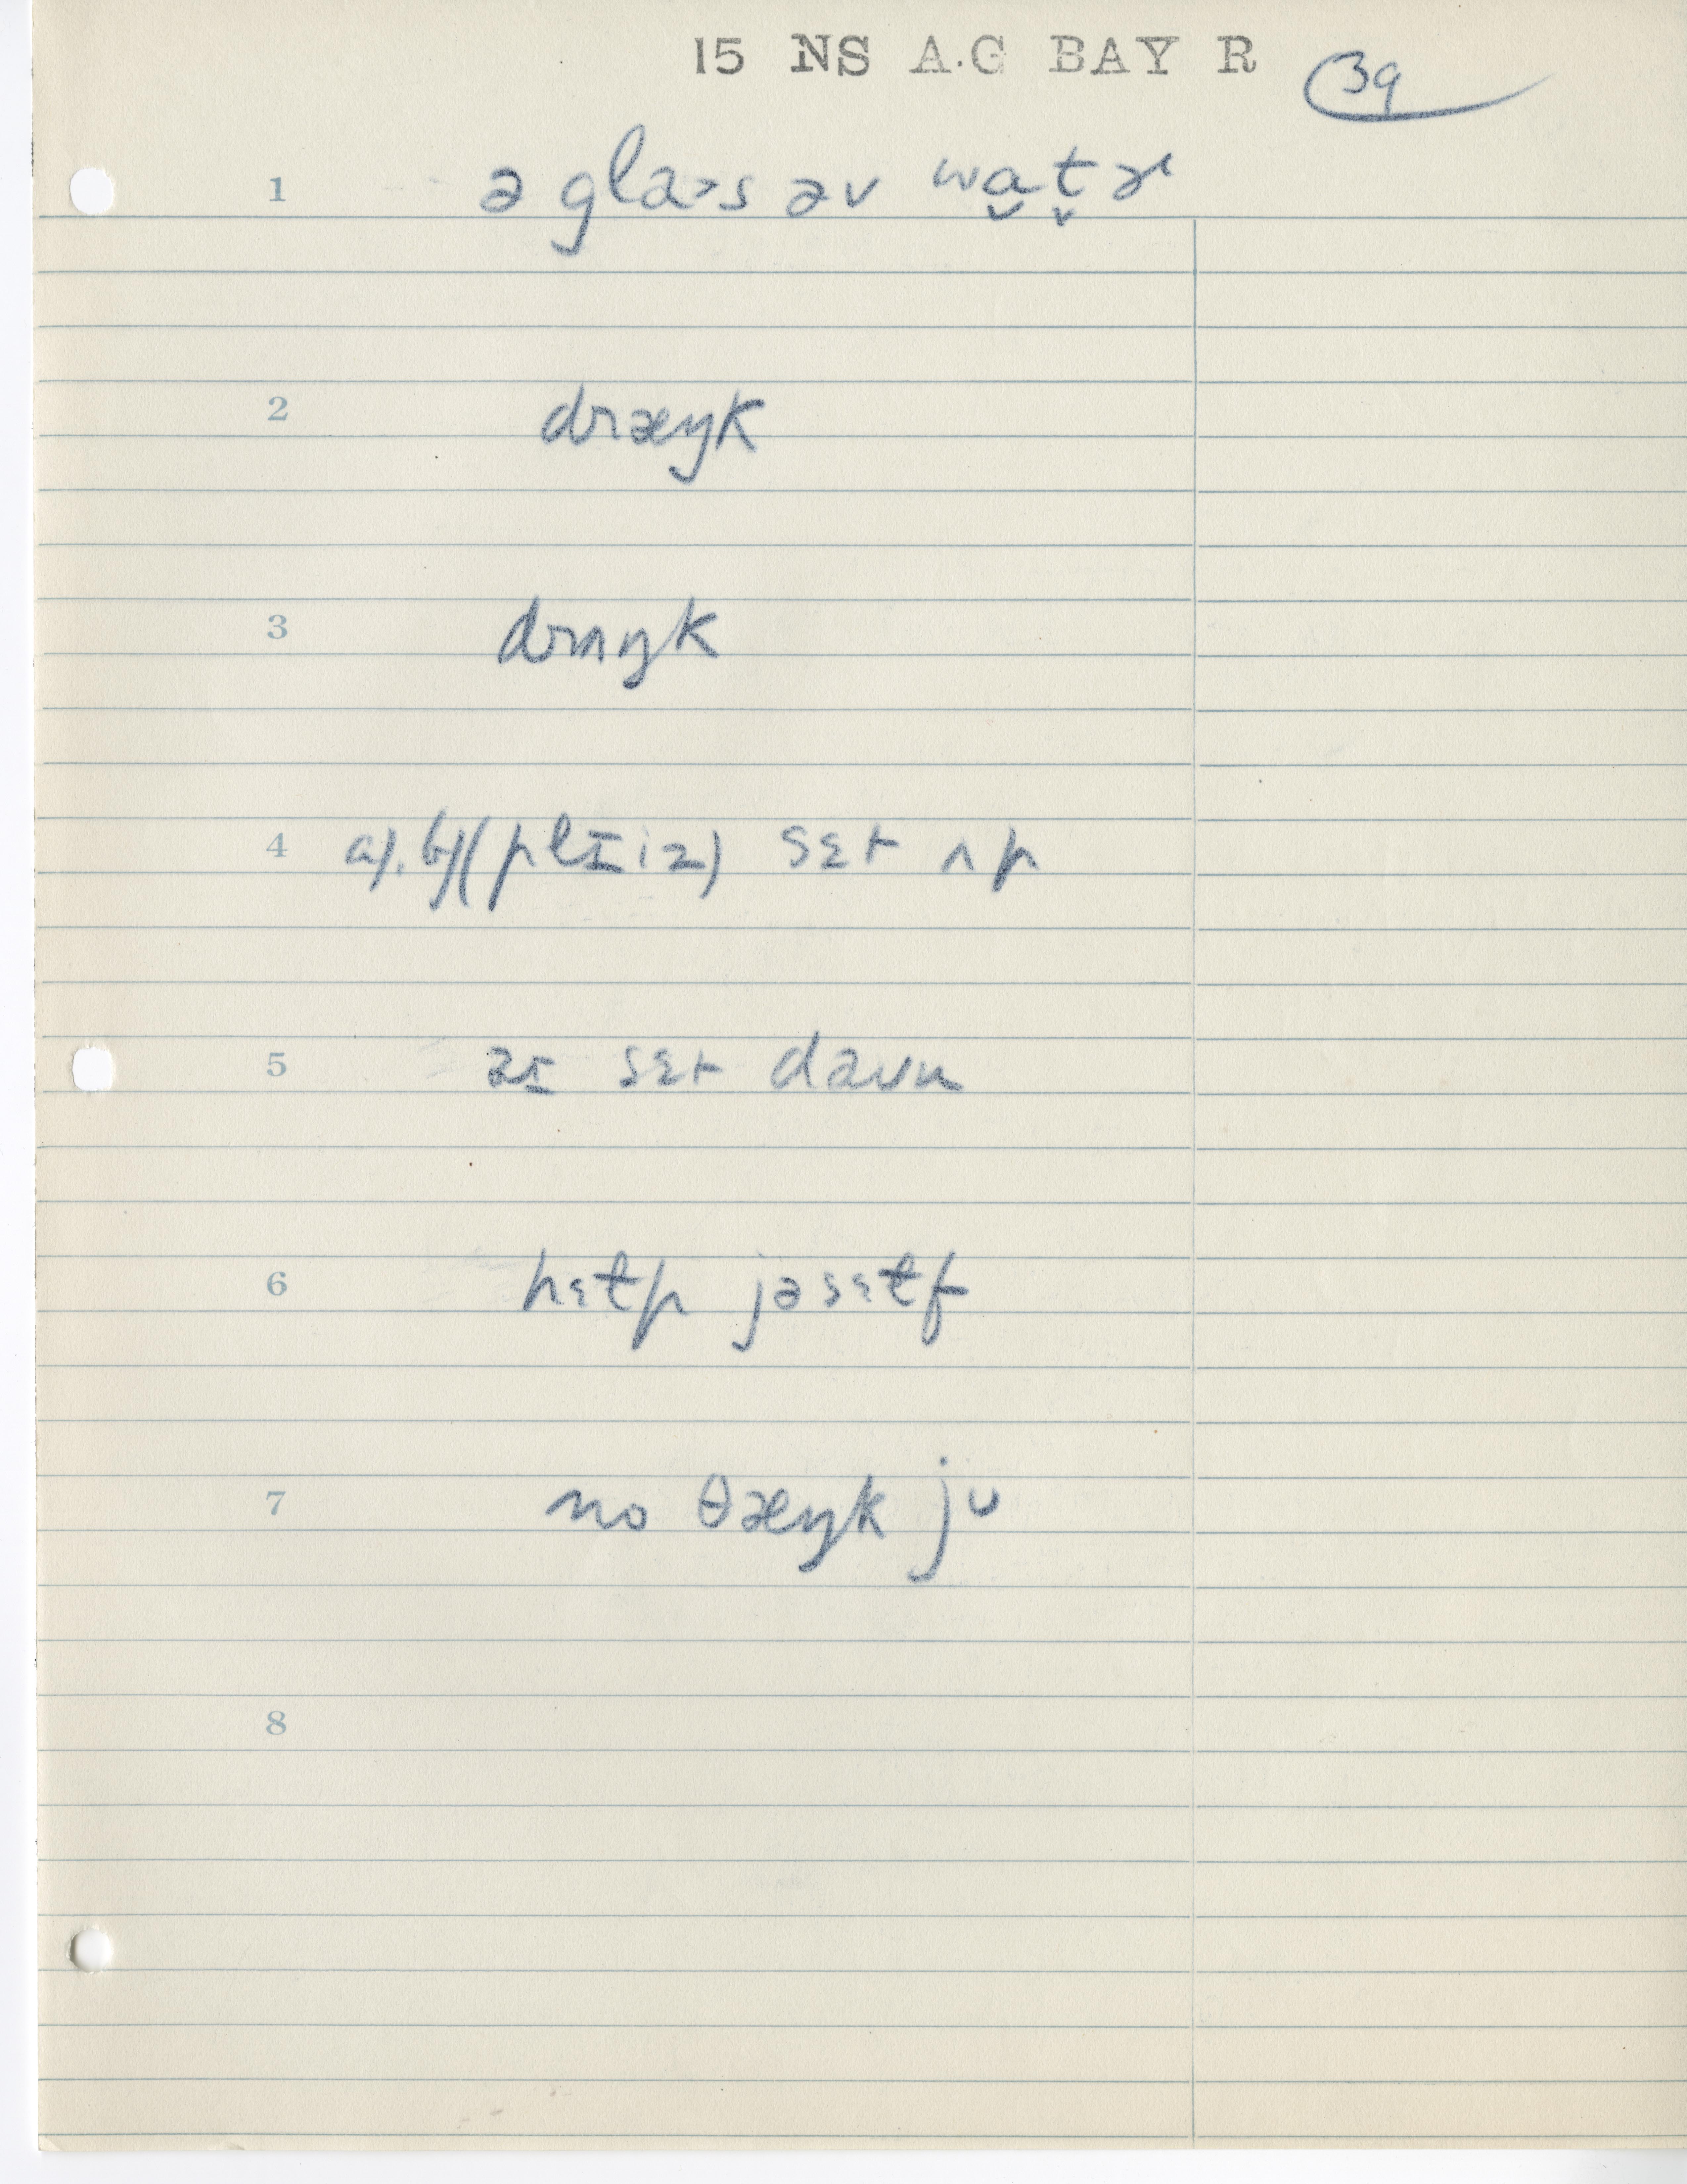 15 NS A.G BAY R 39
1 ə gla˃s əv wa̬t̬ɚ
2 dræŋk
3 drʌŋk
4 a). b)(plɪiz) sɛt ʌp
5 əɪ sɛt daʊn
6 hɛɫp jəsɛɫf
7 no θæŋk jʊ
8